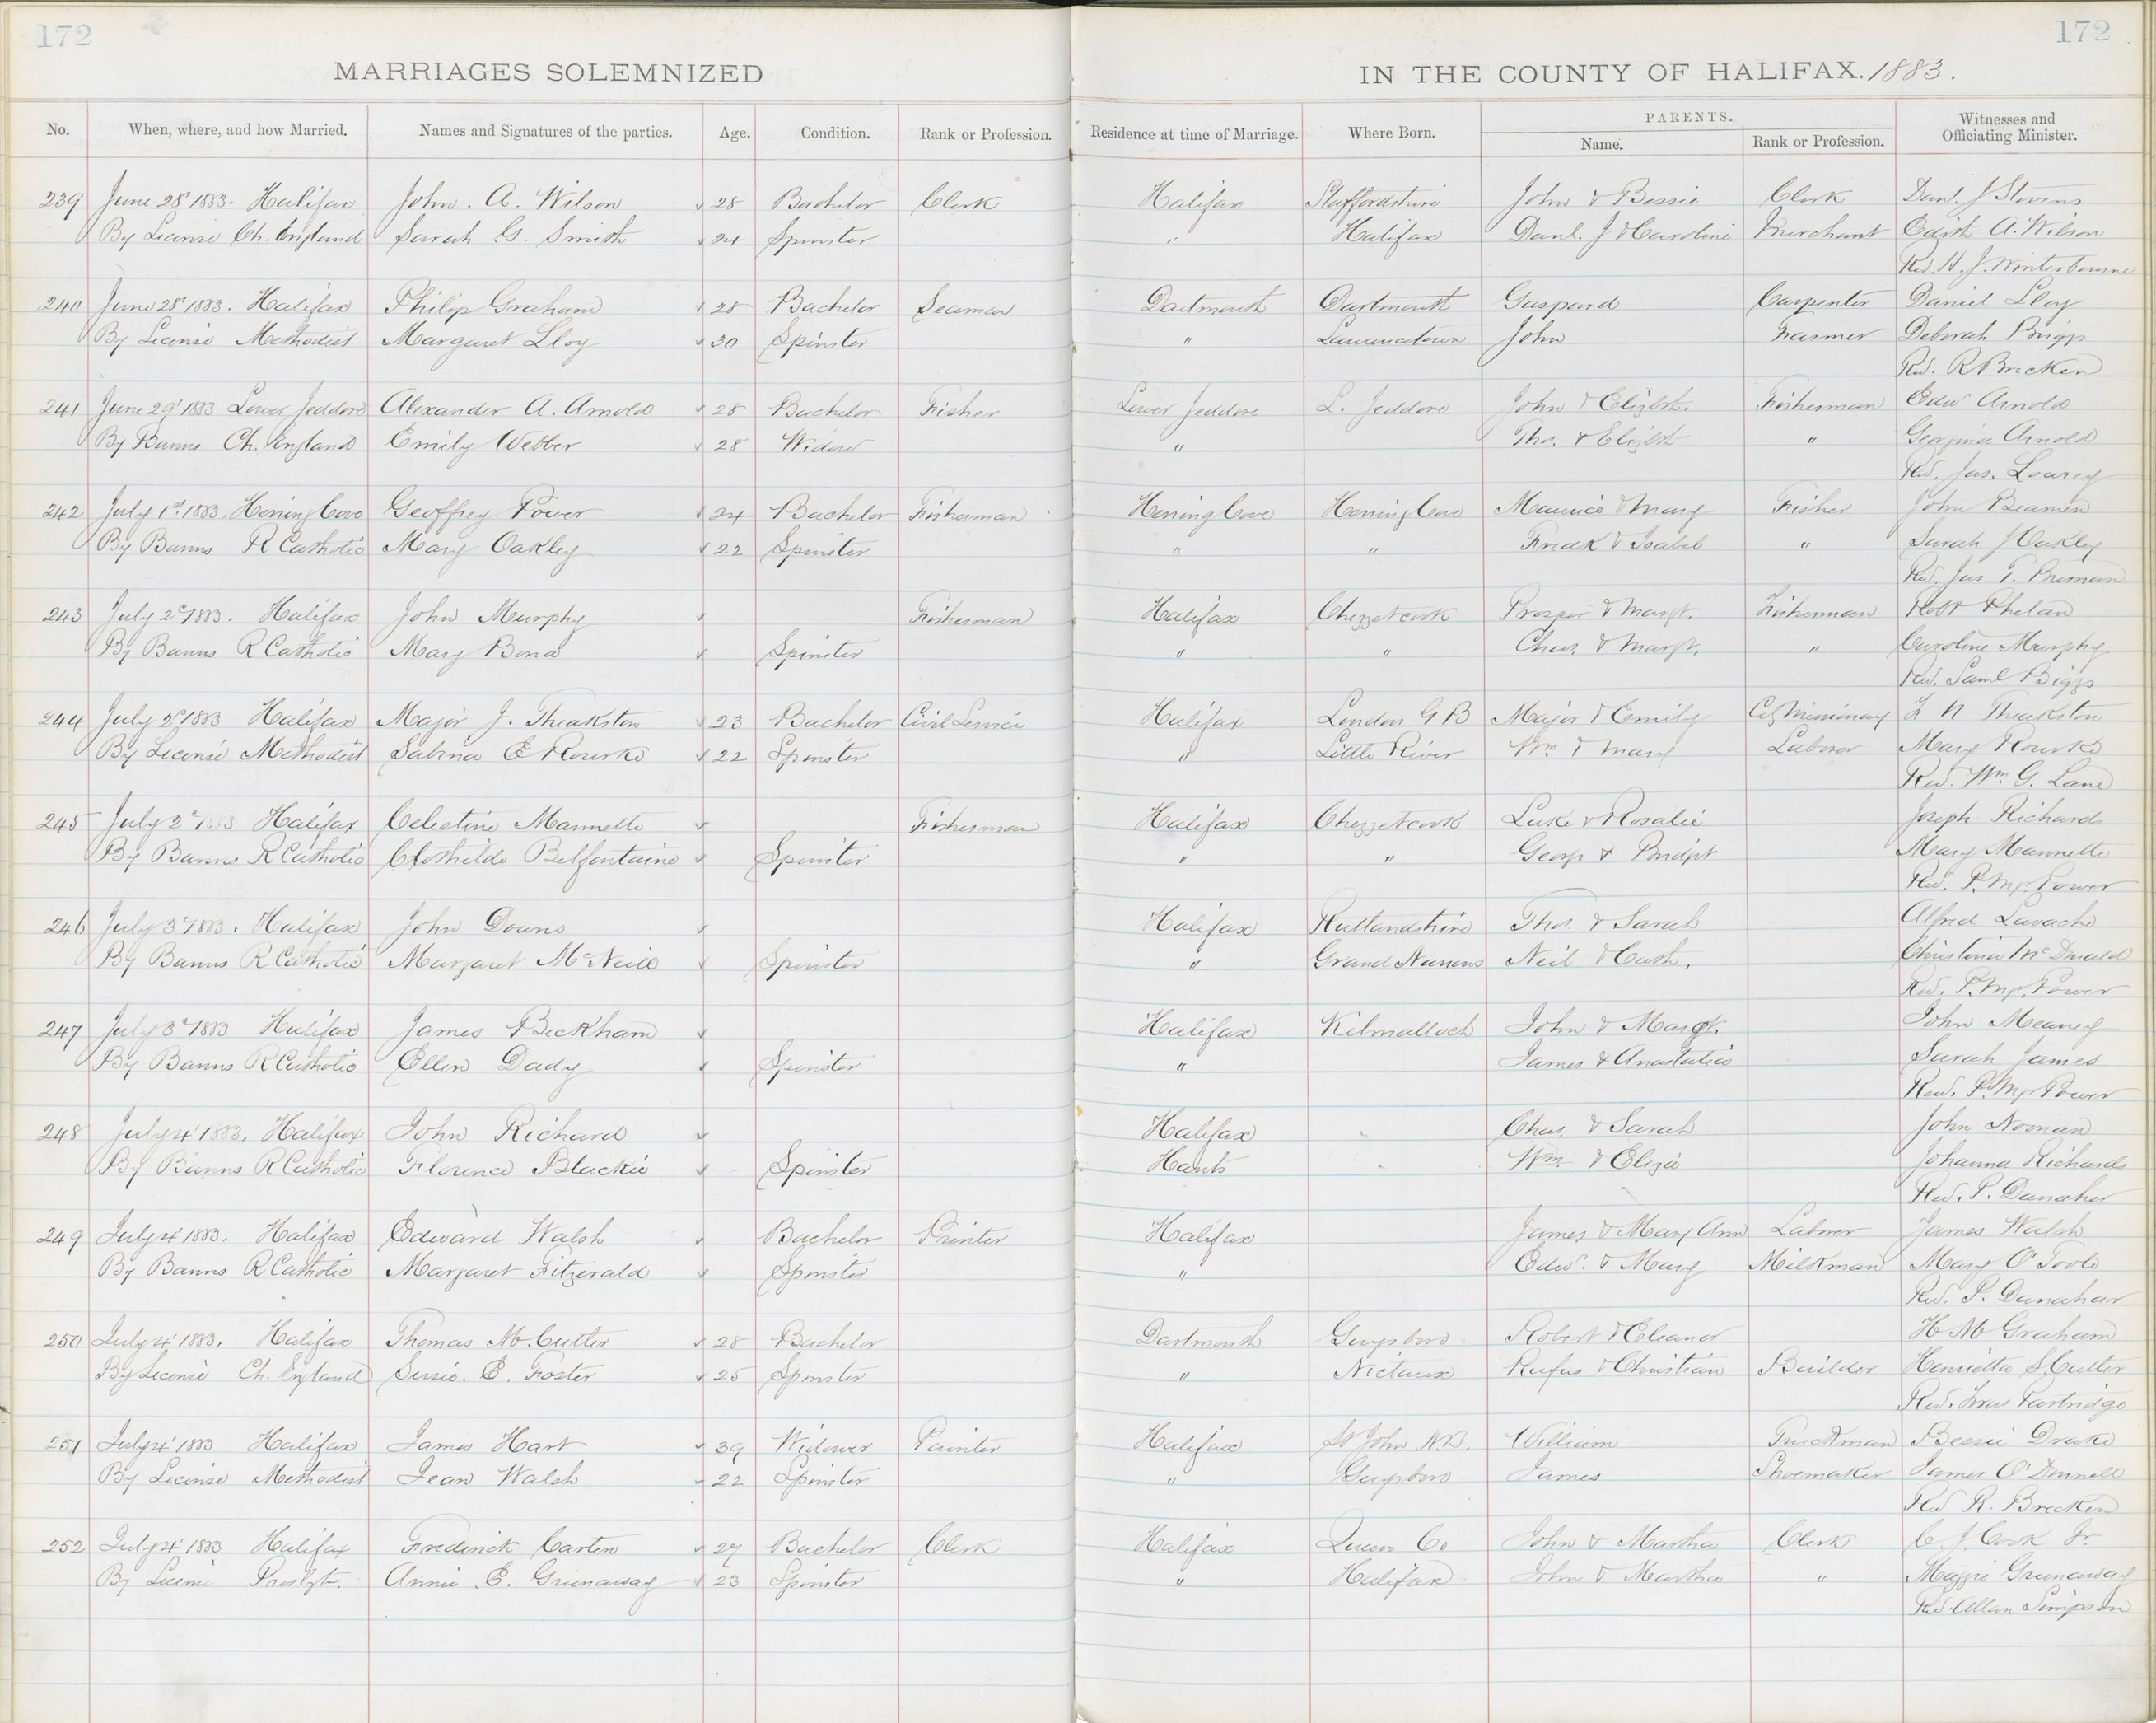 172
172
MARRIAGES SOLEMNIZED
IN THE COUNTY OF HALIFAX. 1883.
No. When, where, and how Married. Names and Signatures of the parties. Age. Condition. Rank or Profession. Residence at time of Marriage. Where Born. PARENTS. Name. Rank or Profession. Witnesses and Officiating Minister.
239 June 28' 1883. Halifax John. A. Wilson 28 Bachelor Clerk Halifax Staffordshire John & Bessie Clerk Danl. J Stevens
By License Ch. England Sarah G. Smith 24 Spinster " Halifax Danl. J & Caroline Merchant Edith A. Wilson
Rev. H. J. Winterbourne
240 June 28' 1883. Halifax Philip Graham 28 Bachelor Seaman Dartmouth Dartmouth Gaspard Carpenter Daniel Lloy
By License Methodist Margaret Lloy 30 Spinster " Lawrencetown John Farmer Deborah Briggs
Rev. R Brecken
241 June 29' 1883 Lower Jeddore Alexander A. Arnold 28 Bachelor Fisher Lower Jeddore L. Jeddore John & Elizbth. Fisherman Edwd Arnold
By Banns Ch. England Emily Webber 28 Widow " Thos. & Elizbth " Georgina Arnold
Rev. Jas. Lowrey
242 July 1st 1883. Herring Cove Geoffrey Power 24 Bachelor Fisherman Herring Cove Herring Cove Maurice & Mary Fisher John Beamen
By Banns R Catholic Mary Oakley 22 Spinster " " Fredk & Isabel " Sarah J Oakley
Rev. Jas T.
243 July 2d 1883. Halifax John Murphy Fisherman Halifax Chezzetcook Prosper & Margt. Fisherman Robt Phelan
By Banns R Catholic Mary Bona Spinster " " Chas. & Margt. " Caroline Murphy
Rev. Saml Biggs
244 July 2d 1883 Halifax Major J. Theakston 23 Bachelor Civil Service Halifax London G B Major & Emily City Missionary N Theakston
By License Methodist Sabina E Rourke 22 Spinster " Little River Wm & Mary Laborer Mary Rourke
Rev. Wm G. Lane
245 July 2d 1883 Halifax Celestine Mannette Fisherman Halifax Chezzetcook Luke & Rosalie Joseph Richards
By Banns R Catholic Clothilde Belfontaine Spinster " " George & Bridgt Mary Mannette
Rev. P. Mgr. Power
246 July 3d 1883. Halifax John Downs Halifax Rutlandshire Thos. & Sarah Alfred Lavache
By Banns R Catholic Margaret McNeill Spinster " Grand Narrows Neil & Cath. Christina McDonald
Rev. P. Mgr. Power
247 July 3d 1883 Halifax James Beckham Halifax Kilmalloch John & Margt. John Meaney
By Banns R Catholic Ellen Dady Spinster " James & Anastatia Sarah James
Rev. P. Mgr Power
248 July 4' 1883. Halifax John Richard Halifax Chas. & Sarah John Noonan
By Banns R Catholic Florence Blackie Spinster Hants Wm. & Eliza Johanna Richards
Rev. P. Danaher
249 July 4' 1883. Halifax Edward Walsh Bachelor Printer Halifax James & Mary Ann Labrer James Walsh
By Banns R Catholic Margaret Fitzerald Spinster " Edwd. & Mary Milkman Mary O'Toole
Rev. P. Danahar
250 July 4' 1883. Halifax Thomas M. Cutler 28 Bachelor Dartmouth Guysboro Robert & Eleanor H M Graham
By License Ch. England Susie. E. Foster 25 Spinster " Nictaux Rufus & Christian Builder Henrietta S. Cutler
Rev. Fras Partridge
251 July 4' 1883 Halifax James Hart 39 Widower Painter Halifax St John N.B. William Truckman Bessie Drake
By License Methodist Jean Walsh 22 Spinster " Guysboro James Shoemaker James O'Donnell
Rev R. Brecken
252 July 4' 1883 Halifax Frederick Carten 27 Bachelor Clerk Halifax Queens Co John & Martha Clerk C. J. Cook Jr.
By License Presbytn. Annie. E. Grienaway 23 Spinster " Halifax John & Martha " Maggie Greenaway
Rev. Allan Simpson